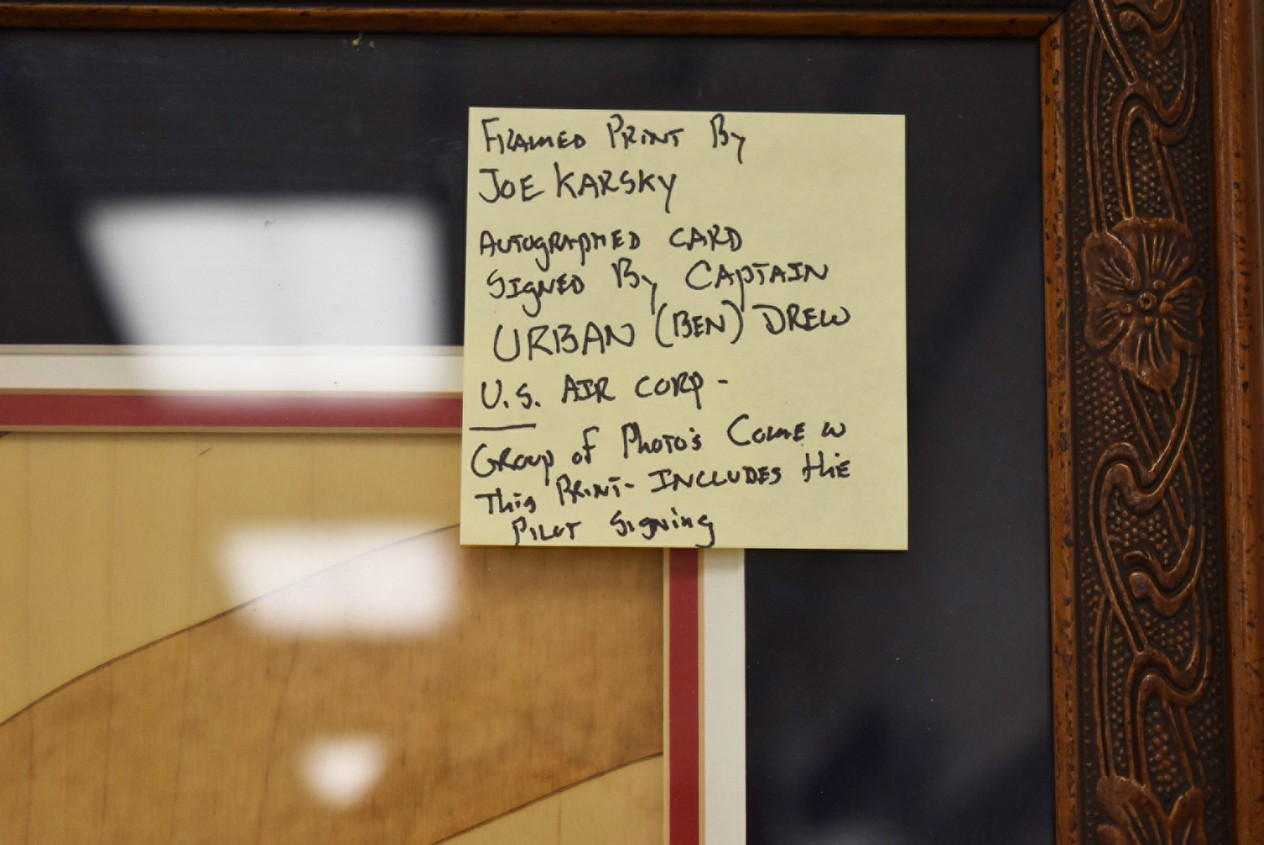 FRAMED PRINT BY
JOE KARSKY
AUTOGRAPHED CARD
SIGNED BY CAPTAIN
URBAN (BEN) DREW
U.S. AIR CORP -
GROUP OF PHOTO'S COME W
THIS PRINT- INCLUDES THE
PILOT SIGNING